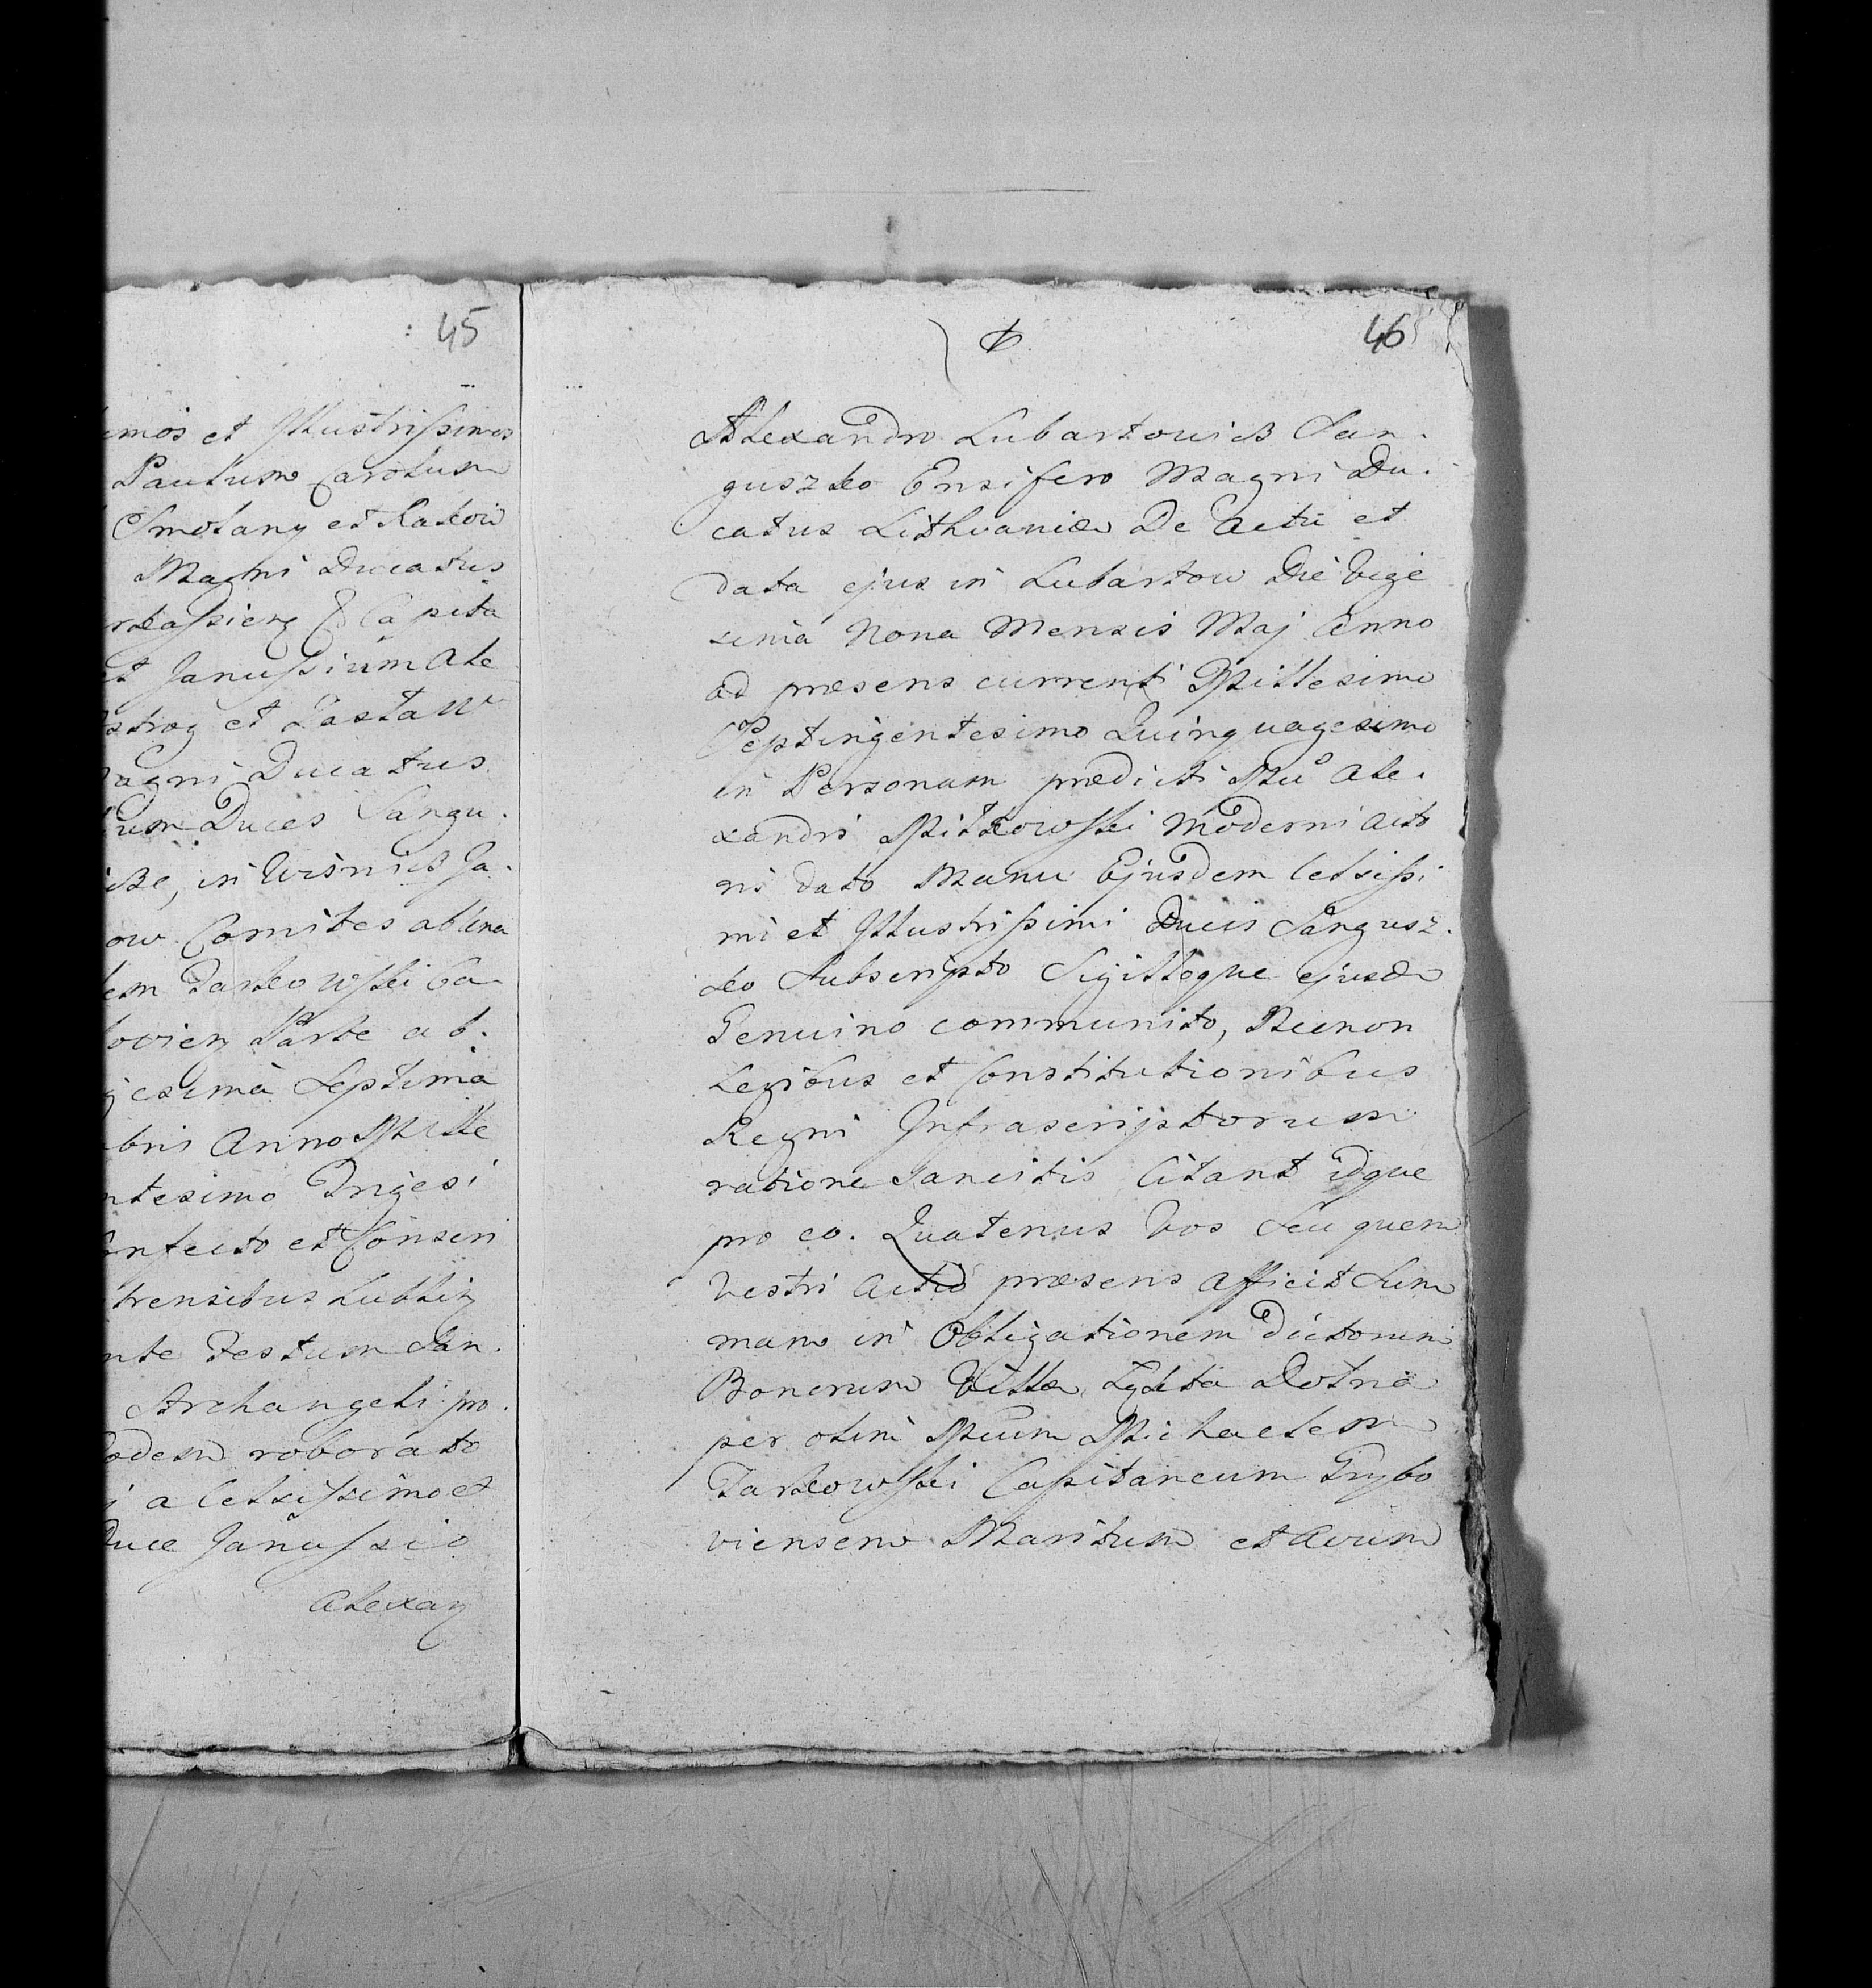 45
imos et Illustrissimos
Paulum Carolum
Smolany et Rakow
Magni Ducatus
Capita
et Janussium Ale
ostrog et Zaslaw
Magni Ducatus
um Duces Sangu.
in Wisnicz Ja.
ow Comites ab una
em Tarkowski Ca
ovien Parte ab.
gesima Septima
bris Anno Mille
ntesimo Triges'
onfecto et Consen
trensibus Lublin
nte Festum San.
Archangeli pro.
odem roborato
a Celsissimo et
Duce Janussio
Alexan
46
Alexandro Lubartowicz San.
guszko Ensifero Magni Du.
catus Lithvaniæ De Actu et
data ejus in Lubartow Die Vige
sima Nona Mensis Maj Anno
ad præsens currenti Millesimo
Septingentesimo Quinquagesimo
in Personam prædicti Mci Ale.
xandri Mitkowski Moderni Acto
ris dato Manu Ejusdem Celsissi
mi et Illustrissimi Ducis Sangusz.
ko Subscripto Sigilloque ejusdem
Genuino communito, Necnon
Legibus et Constitutionibus
Regni Infrascriptorum
ratione Sancitis Citant idque
pro eo. Quatenus Vos Seu quem
Vestri Actio præsens afficit Sum
mam in Obligationem dictorum
Bonorum Villæ Dolna
per olim Mcum Michaelem
Tarkowski Capitaneum Grybo
viensem Maritum et Avum